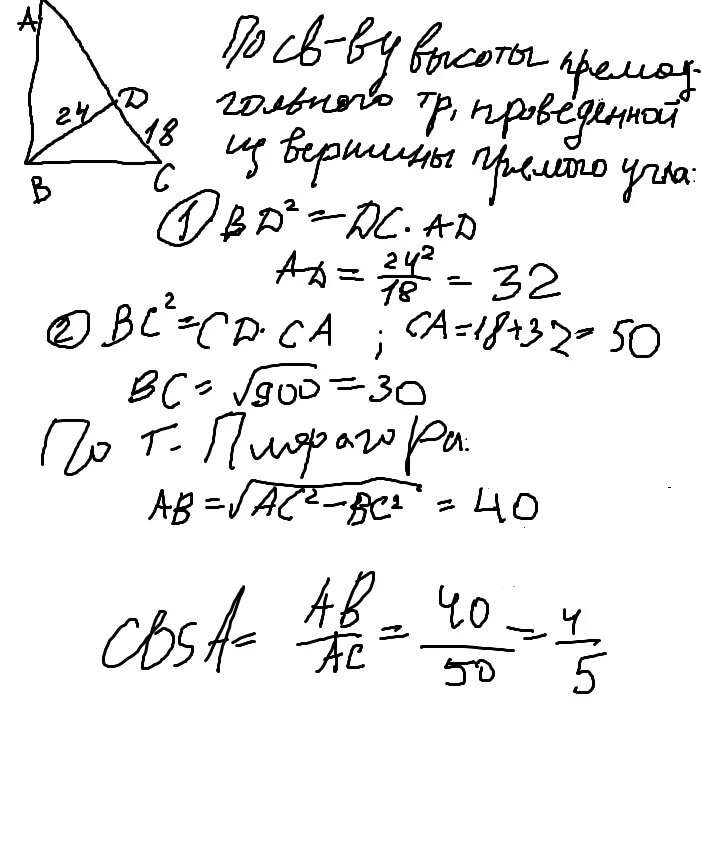 A
24
D
18
B
C
По св-ву высоты прямоу-
гольного тр, проведённой
из вершины прямого угла:
① BD² = DC · AD
AD = 24²/18 = 32
② BC² = CD · CA ; CA = 18+32 = 50
BC = √900 = 30
По т. Пифагора:
AB = √AC² − BC² = 40
cos A = AB/AC = 40/50 = 4/5